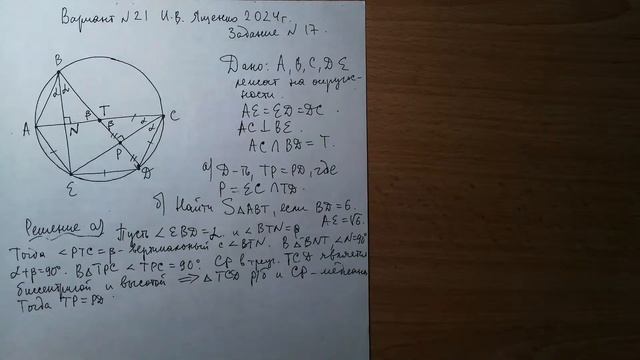 Вариант N21 И.В. Ященко 2024г.
Задание N 17.
Дано: A, B, C, D E
лежат на окруж-
ности.
AE = ED = DC
AC ⊥ BE
AC ∩ BD = T.
а) Д-ть, TP = PD, где
P = EC ∩ TD.
б) Найти S△ABT, если BD = 6.
AE = √6.
B
α α
T
β
β
A
N
C
α α
P
E
D
Решение а) Пусть ∠EBD = α и ∠BTN = β
Тогда ∠PTC = β - вертикальный с ∠BTN. В △BNT ∠N = 90°
α + β = 90°. В △TPC ∠TPC = 90°. CP в треуг. TCD является
биссектрисой и высотой ⟹ △TCD р/б и CP - медиана
Тогда TP = PD.